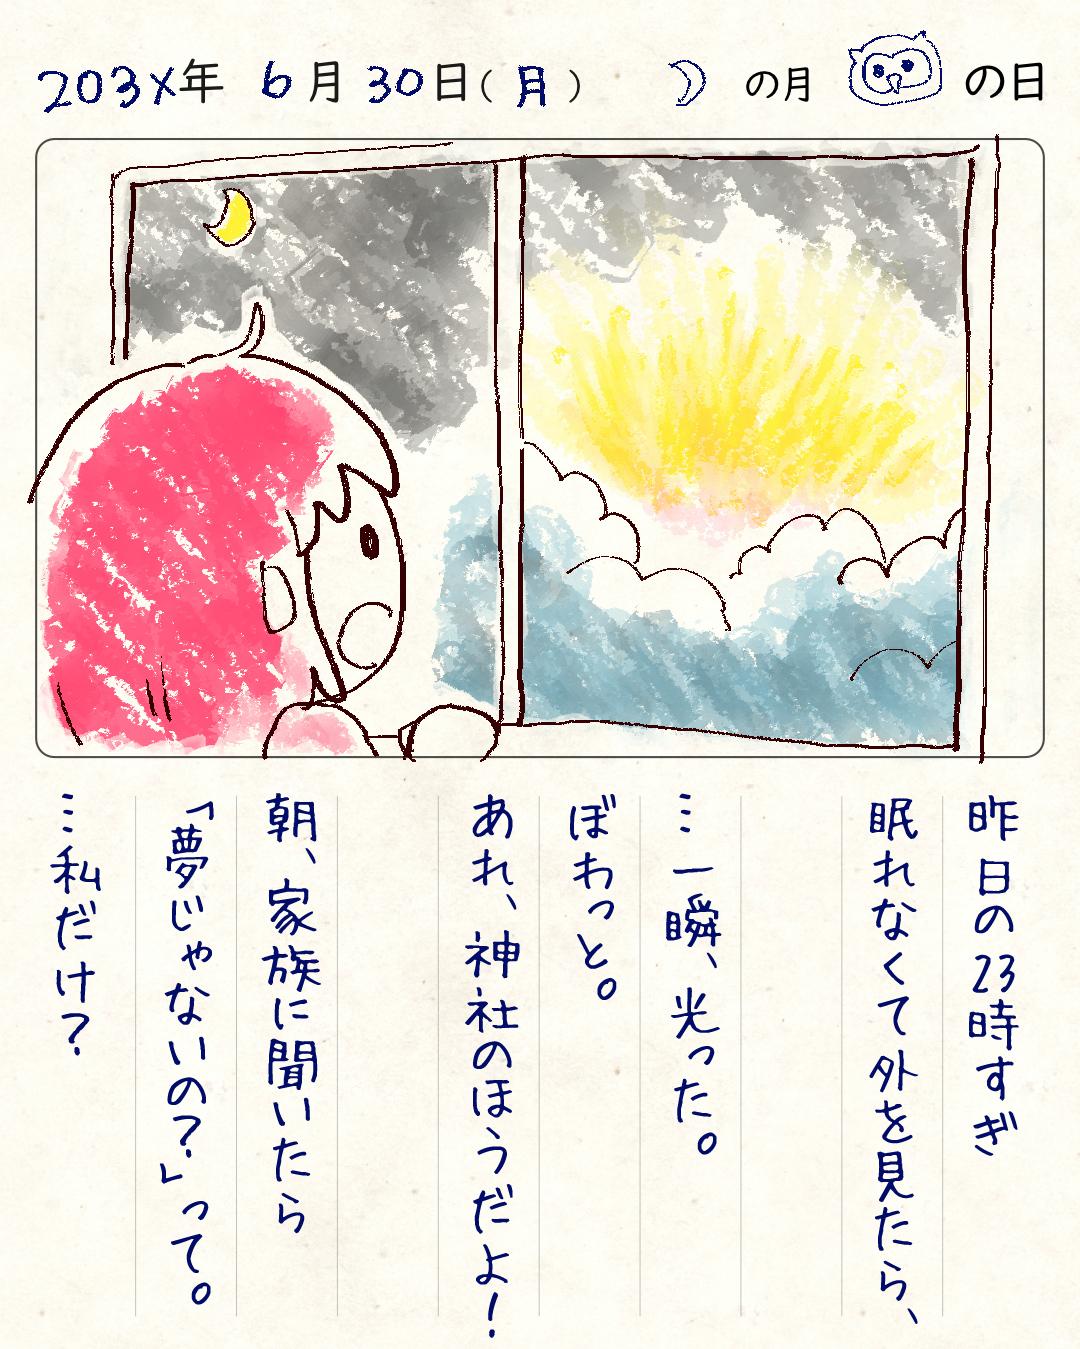 203X年 6月30日(月) の月 の日
昨日の23時すぎ
眠れなくて外を見たら、
…一瞬、光った。
ぼわっと。
あれ、神社のほうだよ！
朝、家族に聞いたら
「夢じゃないの？」って。
…私だけ？